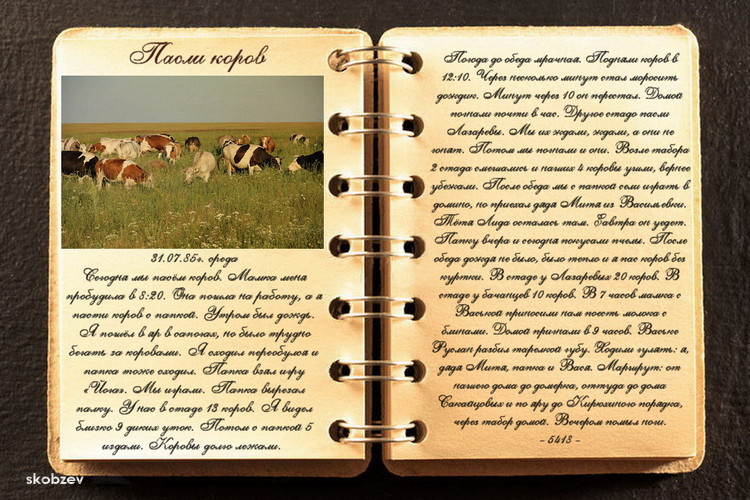 Пасли коров
31.07.85г. среда
Сегодня мы пасём коров. Мамка меня
пробудила в 8:20. Она пошла на работу, а я
пасти коров с папкой. Утром был дождь.
Я пошёл в яр в сапогах, но было трудно
бегать за коровами. Я сходил переобулся и
папка тоже сходил. Папка взял игру
«Йога». Мы играли. Папка вырезал
палку. У нас в стаде 13 коров. Я видел
близко 9 диких уток. Потом с папкой 5
издали. Коровы долго лежали.
Погода до обеда мрачная. Подняли коров в
12:10. Через несколько минут стал моросить
дождик. Минут через 10 он перестал. Домой
погнали почти в час. Другое стадо пасли
Лазаревы. Мы их ждали, ждали, а они не
гонят. Потом мы погнали и они. Возле табора
2 стада смешались и наших 4 коровы ушли, вернее
убежали. После обеда мы с папкой сели играть в
домино, но приехал дядя Митя из Васильевки.
Тётя Лида осталась там. Завтра он уедет.
Папку вчера и сегодня покусали пчелы. После
обеда дождя не было, было тепло и я пас коров без
куртки. В стаде у Лазаревых 20 коров. В
стаде у бачанцев 10 коров. В 7 часов мамка с
Васькой приносили нам поесть молока с
блинами. Домой пригнали в 9 часов. Ваське
Руслан разбил тарелкой губу. Ходили гулять: я,
дядя Митя, папка и Вася. Маршрут: от
нашего дома до долгерка, оттуда до дома
Сакайцовых и по яру до Кирюхиного порядка,
через табор домой. Вечером помыл ноги.
- 5413 -
skobzev